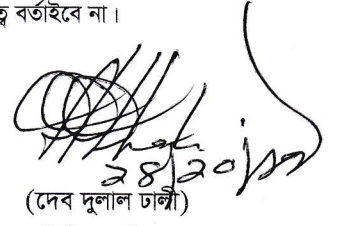 ত্ব বর্তাইবে না।
২৪/১০/১৭
(দেব দুলাল ঢালী)